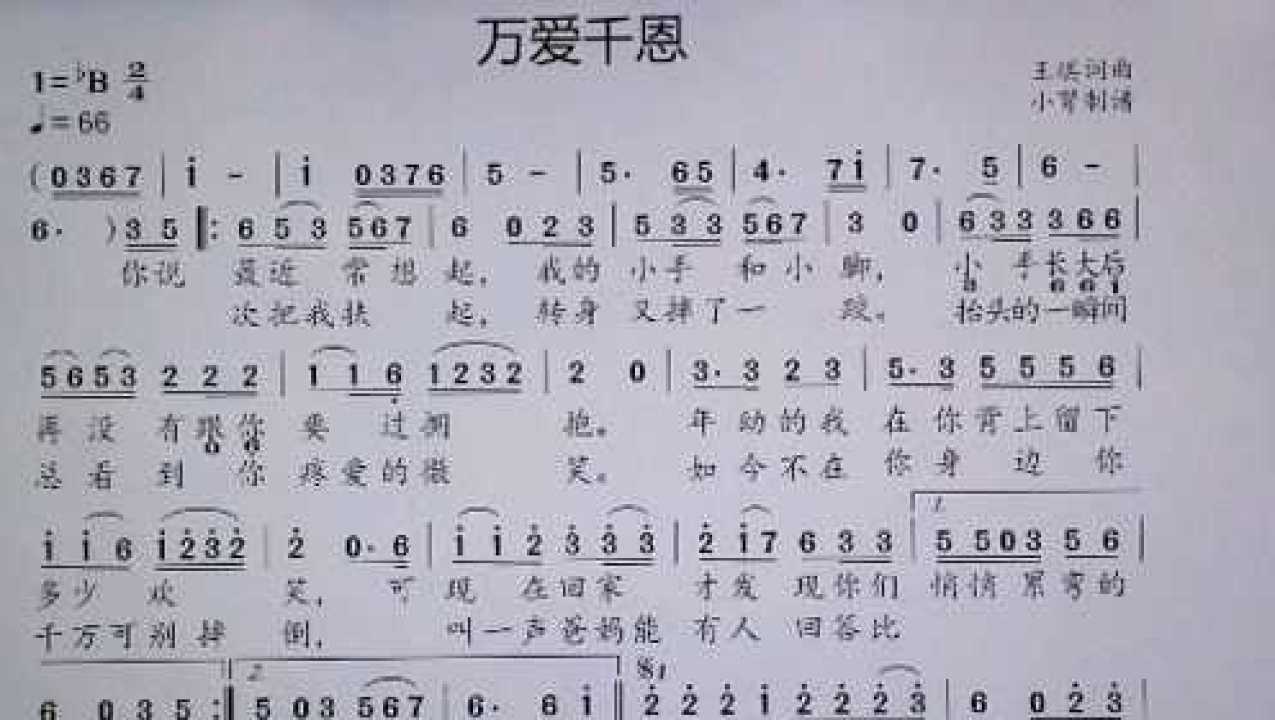 万爱千恩
1=♭B 2/4
王琪词曲
♩=66
小胃制谱
(0367 | i - | i 0376 | 5 - | 5· 65 | 4· 7i | 7· 5 | 6 - |
6· )35 ‖: 653 567 | 6 023 | 533 567 | 3 0 | 633 366 |
你说 最近 常想起, 我的小手 和小脚, 小手长大后
次把我扶 起, 转身又摔了一 跤。 抬头的一瞬间
5653 222 | 116 1232 | 2 0 | 3·3 23 | 5·3 5556 |
再没有跟你要过拥 抱。 年幼的我在你背上留下
总看到你疼爱的微 笑。 如今不在你身边你
1.
ii6 i232 | 2 0·6 | ii2 333 | 2i7 633 | 5503 56 |
多少欢 笑, 可现在回家才发现你们悄悄累弯的
千万可别摔 倒, 叫一声爸妈能有人回答比
2. 𝄋1
6 035 :‖ 503 567 | 6· 6i ‖ 222i 2223 | 6 023